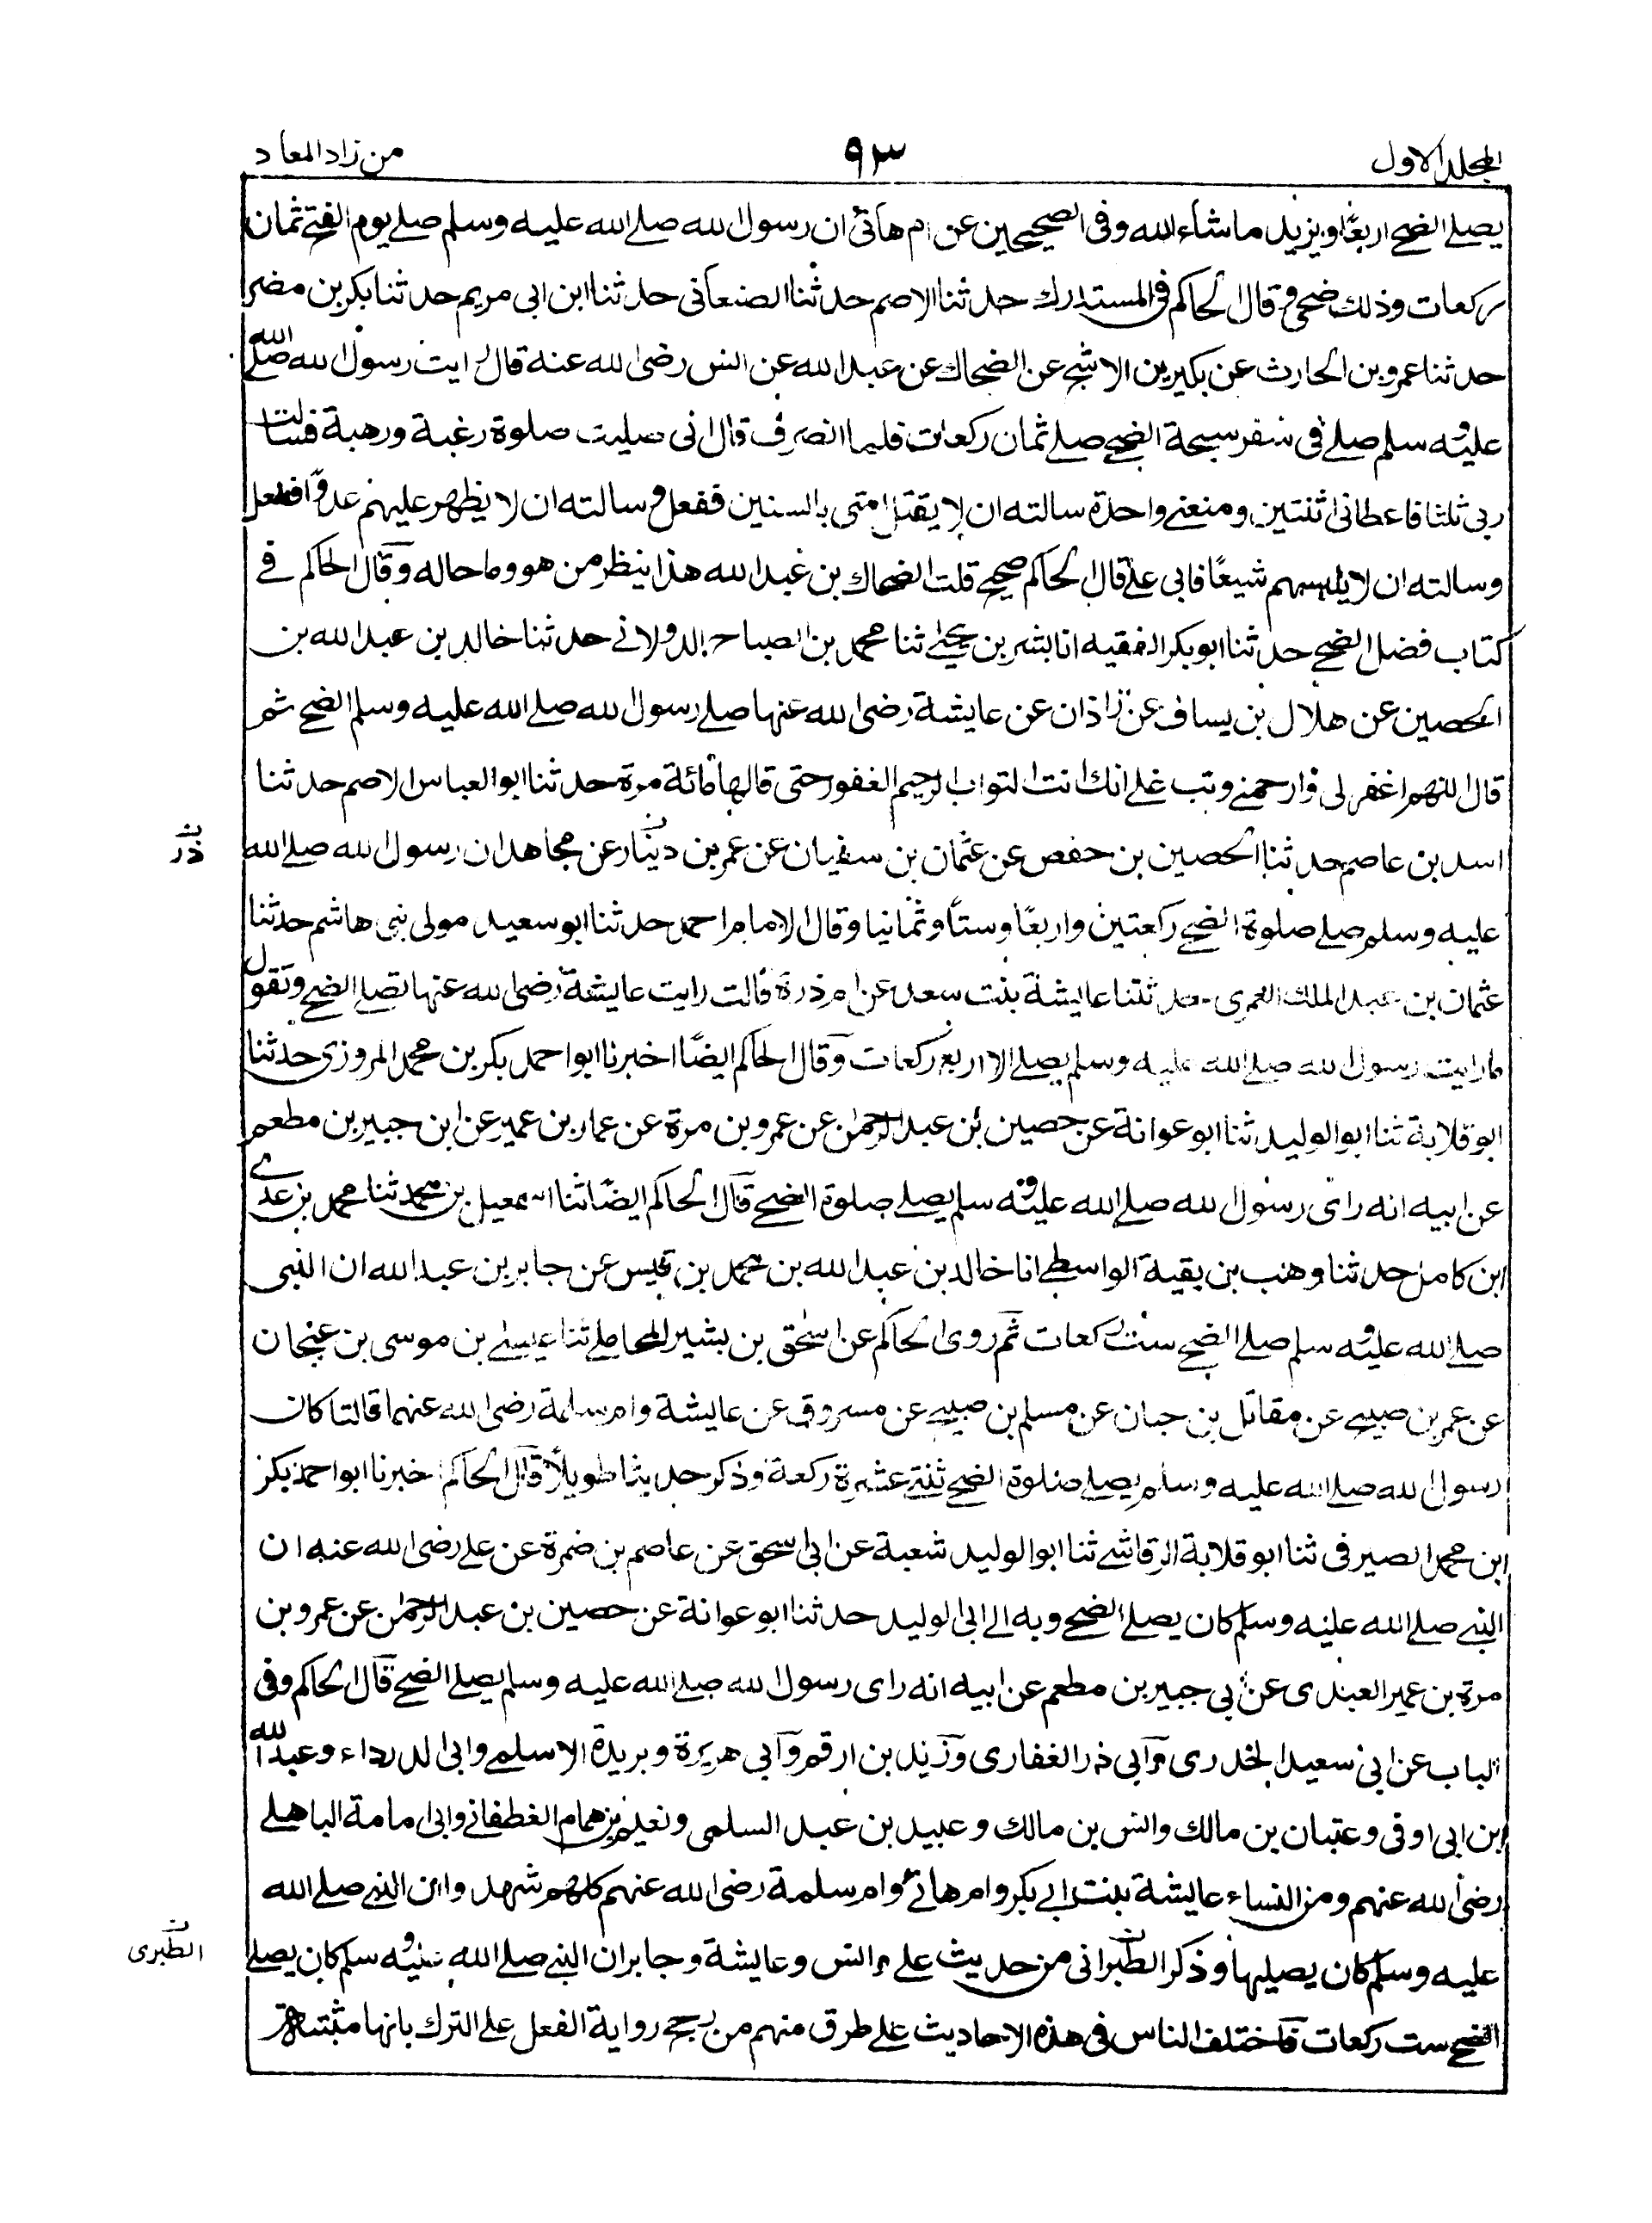 المجلد الاول
٩٣
من زاد المعاد
يصلے الضحے اربعًا ويزيد ما شاء الله وفى الصحيحين عن ام هانئ ان رسول الله صلے الله عليه وسلم صلے يوم الفتح ثمان
ركعات وذلك ضحى وقال الحاكم فى المستدرك حدثنا الاصم حدثنا الصنعانى حدثنا ابن ابى مريم حدثنا بكر بن مضر
حدثنا عمرو بن الحارث عن بكير بن الاشج عن الضحاك عن عبد الله عن انس رضى الله عنه قال رايت رسول الله صلے الله
عليه وسلم صلے فى سفر سبحة الضحے صلے ثمان ركعات فلما انصرف قال انى صليت صلوة رغبة ورهبة فسالت
ربى ثلثا فاعطانى ثنتين ومنعنے واحدة سالته ان لا يقتل امتى بالسنين ففعل وسالته ان لا يظهر عليهم عدوا ففعل
وسالته ان لا يلبسهم شيعًا فابى علے قال الحاكم صحيح قلت الضحاك بن عبد الله هذا ينظر من هو وما حاله وقال الحاكم فے
كتاب فضل الضحے حدثنا ابو بكر الفقيه انا بشر بن يحيٰے ثنا محمد بن الصباح الدولانے حدثنا خالد بن عبد الله بن
الحصين عن هلال بن يساف عن زاذان عن عايشة رضى الله عنها صلے رسول الله صلے الله عليه وسلم الضحے ثم
قال اللهم اغفر لى وارحمنے وتب علے انك انت التواب الرحيم الغفور حتى قالها مائة مرة حدثنا ابو العباس الاصم حدثنا
اسد بن عاصم حدثنا الحصين بن حفص عن عثمان بن سفيان عن عمر بن دينار عن مجاهد ان رسول الله صلے الله
ذر
عليه وسلم صلے صلوة الضحے ركعتين واربعًا وستًا وثمانيا وقال الامام احمد حدثنا ابو سعيد مولى بنى هاشم حدثنا
عثمان بن عبد الملك العمرى حدثتنا عايشة بنت سعد عن ام ذرة قالت رايت عايشة رضى الله عنها تصلے الضحے وتقول
ما رايت رسول الله صلے الله عليه وسلم يصلے الا اربع ركعات وقال الحاكم ايضًا اخبرنا ابو احمد بكر بن محمد المروزى حدثنا
ابو قلابة ثنا ابو الوليد ثنا ابو عوانة عن حصين بن عبد الرحمٰن عن عمرو بن مرة عن عمار بن عمير عن ابن جبير بن مطعم
عن ابيه انه راى رسول الله صلے الله عليه وسلم يصلے صلوة الضحے قال الحاكم ايضًا ثنا اسمعيل بن محمد ثنا محمد بن عدے
ابن كامل حدثنا وهب بن بقية الواسطے انا خالد بن عبد الله بن محمد بن قيس عن جابر بن عبد الله ان النبى
صلے الله عليه وسلم صلے الضحے ست ركعات ثم روى الحاكم عن اسحٰق بن بشير المحاملے ثنا عيسٰے بن موسى بن غنجان
عن عمر بن صبيح عن مقاتل بن حبان عن مسلم بن صبيح عن مسروق عن عايشة وام سلمة رضى الله عنهما قالتا كان
رسول الله صلے الله عليه وسلم يصلے صلوة الضحے ثنتے عشرة ركعة وذكر حديثا طويلًا قال الحاكم اخبرنا ابو احمد بكر
ابن محمد الصيرفى ثنا ابو قلابة الرقاشے ثنا ابو الوليد شعبة عن ابى اسحٰق عن عاصم بن ضمرة عن علے رضى الله عنه ان
النبے صلے الله عليه وسلم كان يصلے الضحے وبه الے ابى الوليد حدثنا ابو عوانة عن حصين بن عبد الرحمٰن عن عمرو بن
مرة بن عمير العبدى عن بى جبير بن مطعم عن ابيه انه راى رسول الله صلے الله عليه وسلم يصلے الضحے قال الحاكم وفى
الباب عن ابى سعيد الخدرى وابى ذر الغفارى وزيد بن ارقم وابى هريرة وبريدة الاسلمے وابى الدرداء وعبد الله
ابن ابى اوفى وعتبان بن مالك وانس بن مالك وعبيد بن عبد السلمى ونعيم بن همام الغطفانے وابى امامة الباهلے
رضى الله عنهم ومن النساء عايشة بنت ابے بكر وام هانئ وام سلمة رضى الله عنهم كلهم شهدوا ان النبے صلے الله
عليه وسلم كان يصليها وذكر الطبرانى من حديث علے وانس وعايشة وجابر ان النبے صلے الله عليه وسلم كان يصلے
الطبرى
الضحے ست ركعات فاختلف الناس فى هذه الاحاديث علے طرق منهم من رجح رواية الفعل علے الترك بانها مثبتة